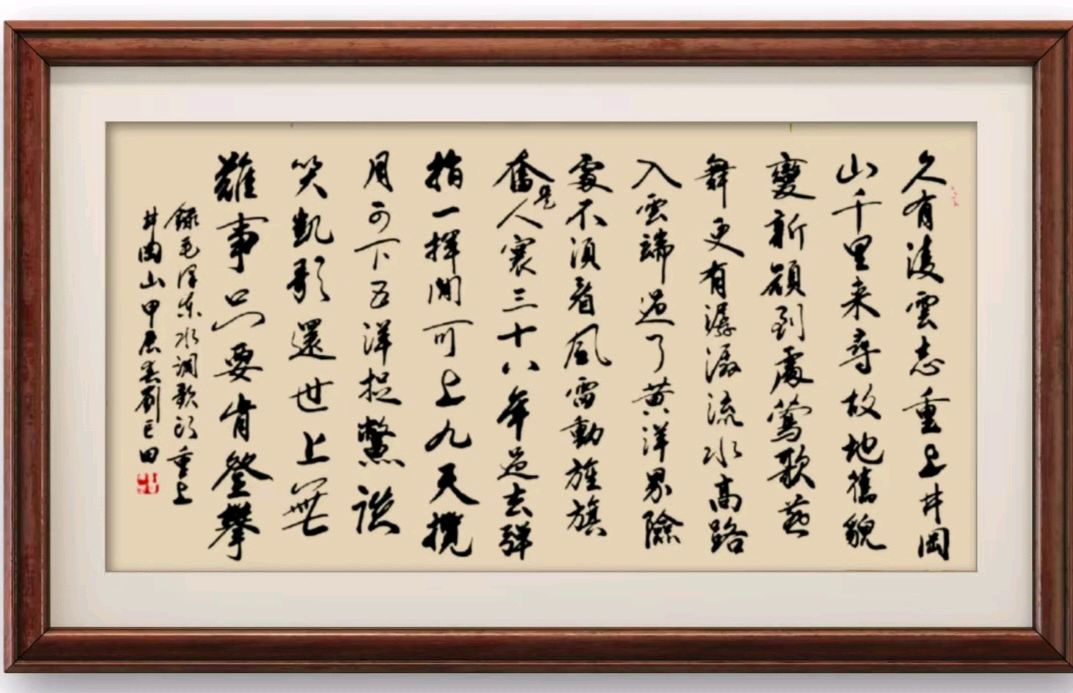 久有凌雲志重上井岡
山千里来尋故地舊貌
變新顔到處鶯歌燕
舞更有潺潺流水高路
入雲端過了黄洋界險
處不須看風雷動旌旗
奮是人寰三十八年過去弹
指一揮間可上九天攬
月可下五洋捉鱉談
笑凱歌還世上無
難事只要肯登攀
録毛澤东水调歌头重上
井岡山甲辰春劉已田